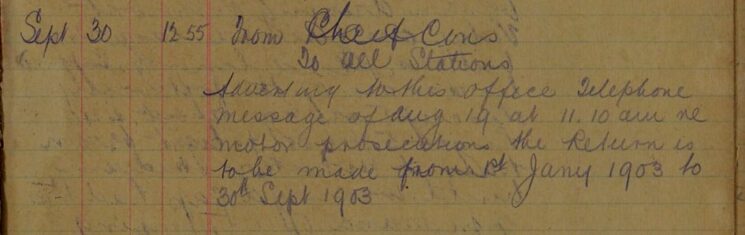 Sept 30 12 55 From Chief Cons
To all Stations
Adverting to this office Telephone
message of Aug 19 at 11.10 am re
motor prosecutions the Return is
to be made from 1st Jany 1903 to
30th Sept 1903